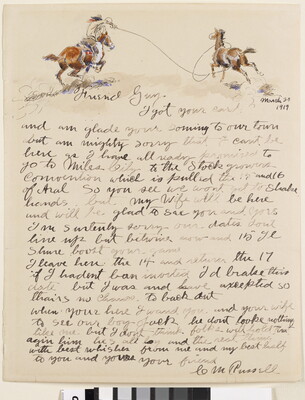 Friend Guy
March 29
1919
I got your card
and am glade your coming to our town
but am mighty sorry that I cant be
here as I have all ready promised to
go to Miles City to the Stock growers
Convention which is pulled the 15 and 16
of Aral So you see we wont get to Shake
hands but my Wife will be here
and will be glad to see you and yors
I am surtenly sorry our dates dont
line up but betwine now and 15 Il
shure boost your game
I leave here the 14 and return the 17
if I hadent ben invited I'd brake this
date but I was and have axcepted so
thairs no chance to back out
when your here I want you and your wife
to see our boy Jack he dont looke nothing
like me but I dont think folks will hold that
agin him
with best whishes from me and my best half
to you and yours your friend
C M Russell